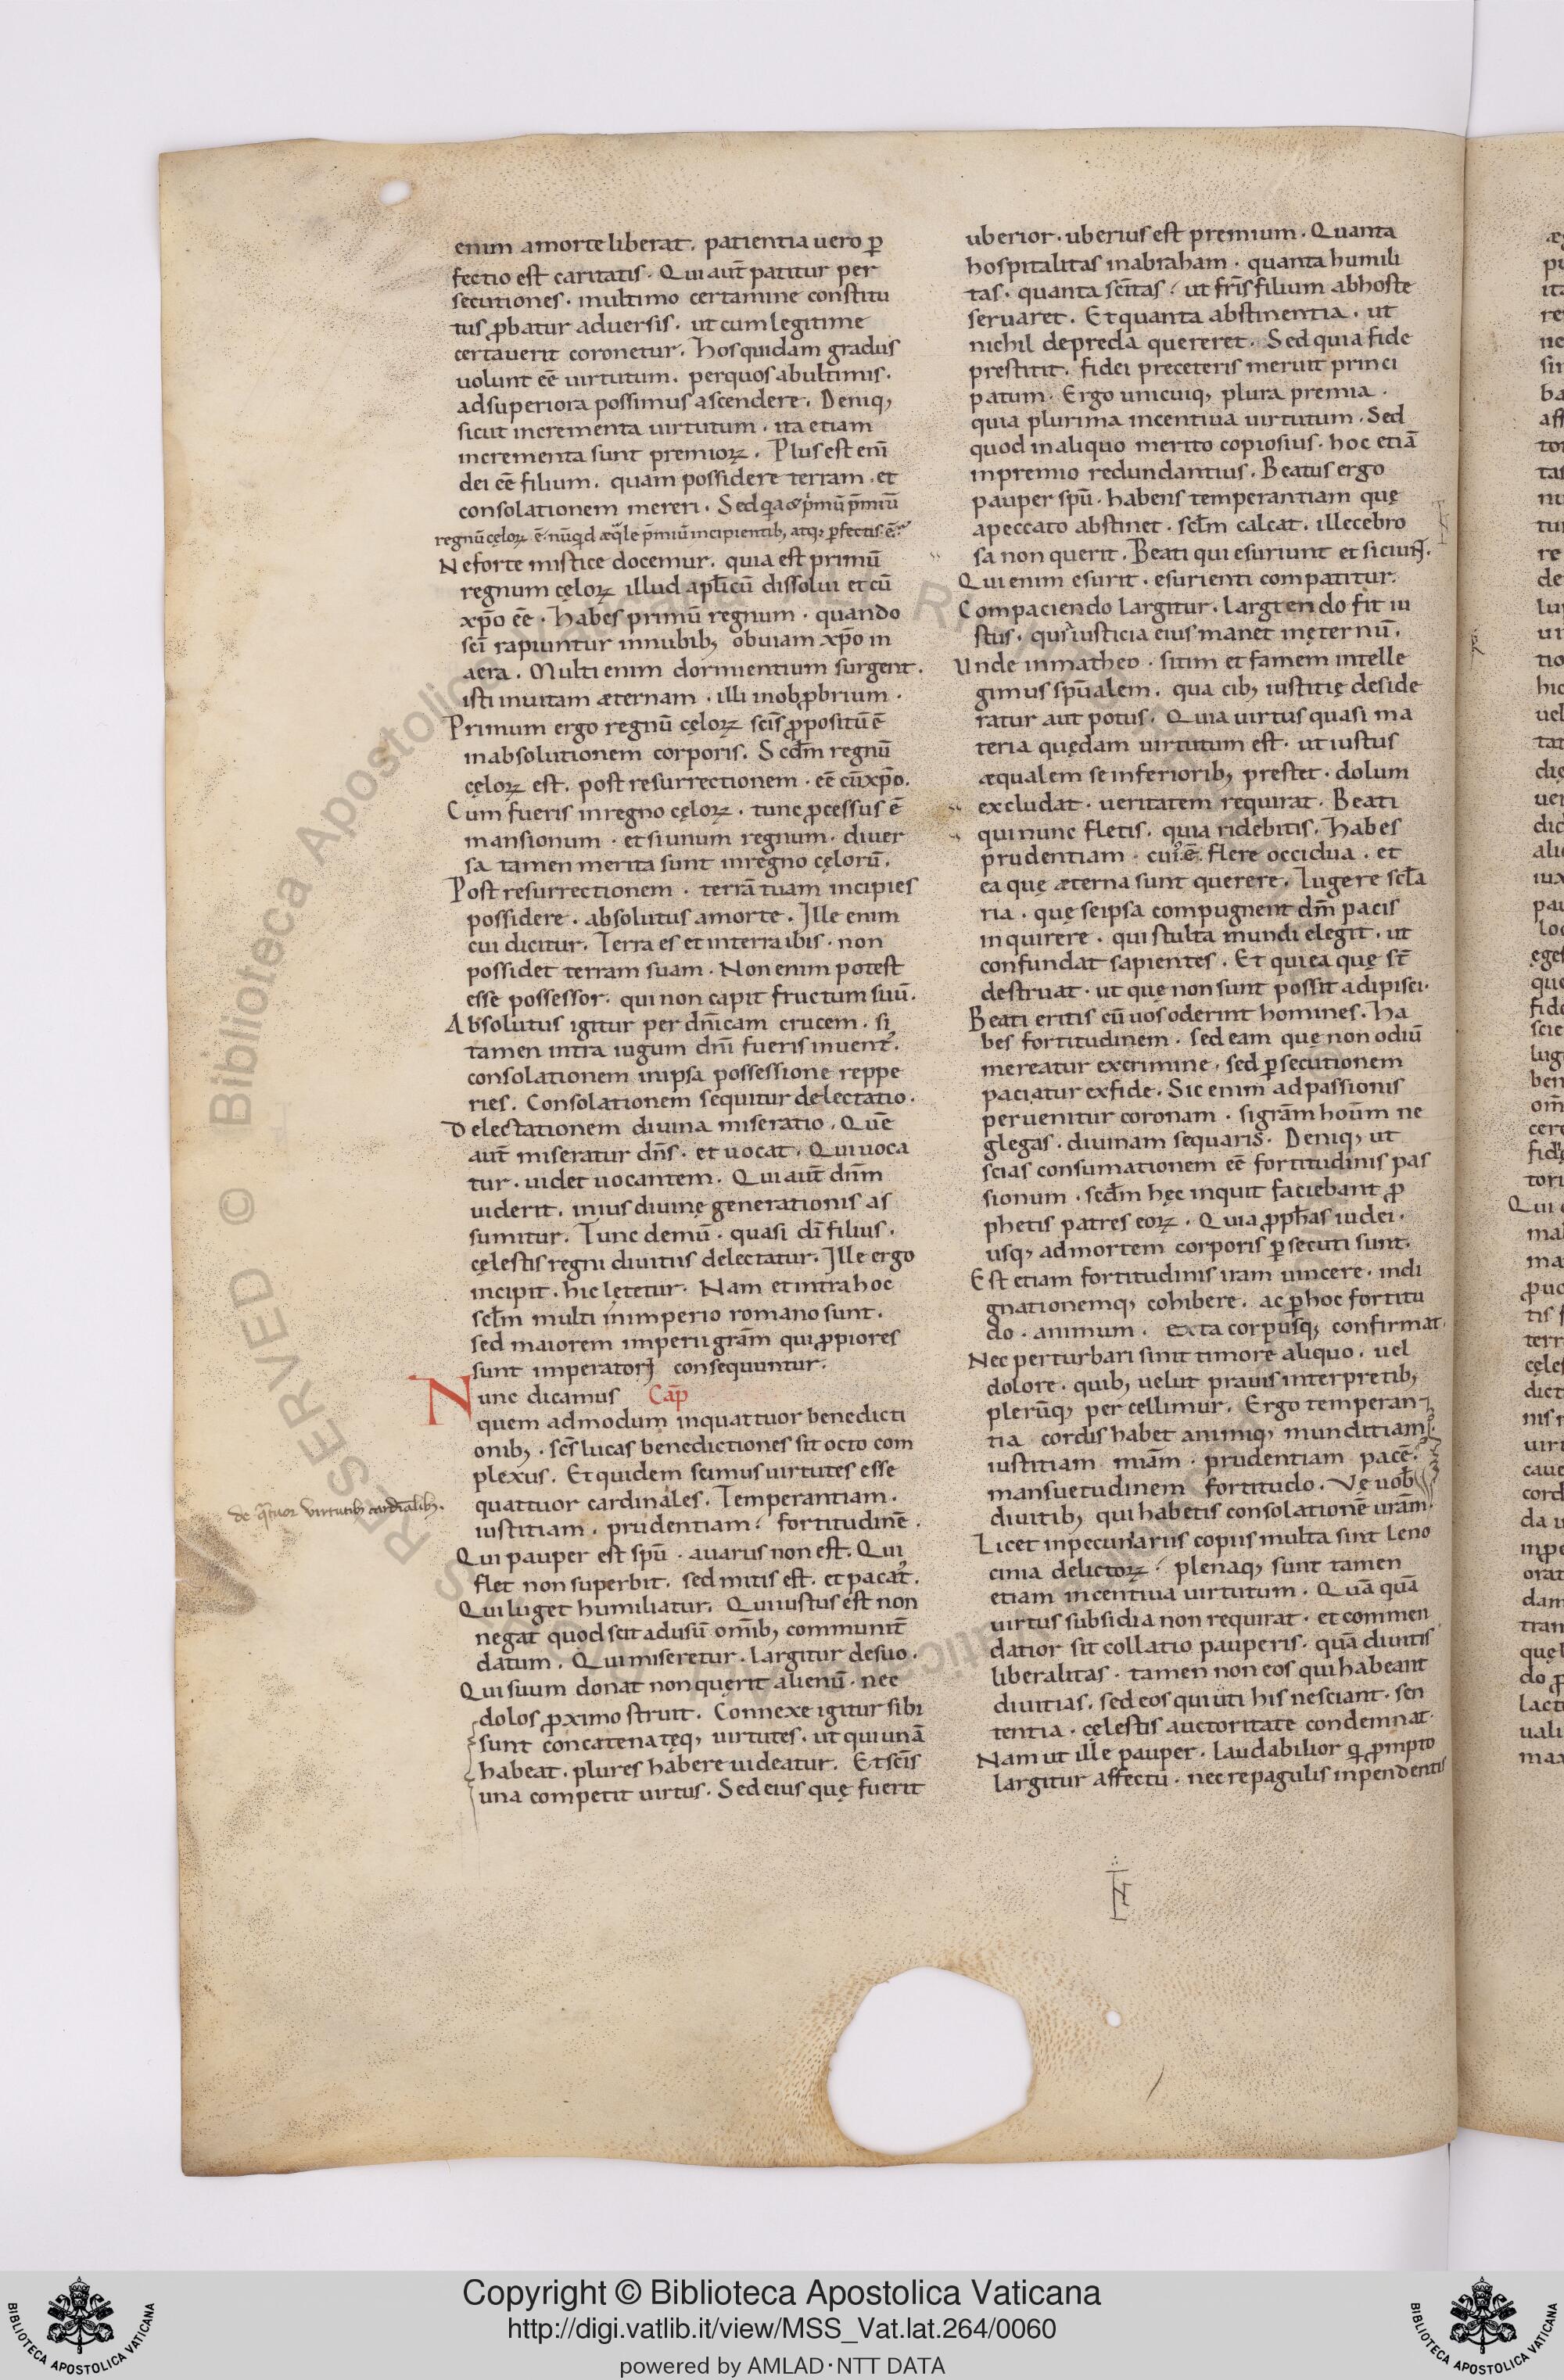 enim amorte liberat. patientia uero ꝑ
fectio est caritatis. Qui aut̄ patitur per
secutiones. inultimo certamine constitu
tus ꝓbatur aduersis. ut cum legitime
certauerit coronetur. Hos quidam gradus
uolunt ēē uirtutum. perquos abultimis.
adsuperiora possimus ascendere. Deniq;
sicut incrementa uirtutum. ita etiam
incrementa sunt premioꝝ. Plus est enī
dei ēē filium. quam possidere terram. et
consolationem mereri. Sed quia & primū p̄miū
regnū cęloꝝ ē. nūquid æquale p̄miū incipientib; atq; ꝑfectis ē?
Neforte mistice docemur. quia est primū
regnum cęloꝝ illud apl̄icū dissolui et cū
xp̄o ēē. Habes primū regnum. quando
scī rapiuntur innubib; obuiam xp̄o in
aera. Multi enim dormientium surgent.
isti inuitam æternam. illi inobꝓbrium.
Primum ergo regnū cęloꝝ scīs ꝓpositū ē
inabsolutionem corporis. Scd̄m regnū
cęloꝝ est. post resurrectionem. ēē cū xp̄o.
Cum fueris inregno cęloꝝ. tunc ꝓcessus ē
mansionum. et si unum regnum. diuer
sa tamen merita sunt inregno cęlorū.
Post resurrectionem. terrā tuam incipies
possidere. absolutus amorte. Ille enim
cui dicitur. Terra es et interra ibis. non
possidet terram suam. Non enim potest
esse possessor. qui non capit fructum suū.
Absolutus igitur per dn̄icam crucem. si
tamen intra iugum dn̄i fueris inuent᾽.
consolationem inipsa possessione reppe
ries. Consolationem sequitur delectatio.
Delectationem diuina miseratio. Quē
aut̄ miseratur dn̄s. et uocat. Qui uoca
tur. uidet uocantem. Qui aut̄ dn̄m
uiderit. inius diuinę generationis as
sumitur. Tunc demū. quasi dī filius.
cęlestis regni diuitiis delectatur. Ille ergo
incipit. hic lętetur. Nam et intra hoc
scl̄m multi inimperio romano sunt.
sed maiorem imperii grām qui ꝓpiores
sunt imperatori consequuntur.
Nunc dicamus Cap̄
quem admodum inquattuor benedicti
onib;. scs̄ lucas benedictiones sit octo com
plexus. Et quidem scimus uirtutes esse
quattuor cardinales. Temperantiam.
iustitiam. prudentiam. fortitudinē.
de quatuor virtutib; cardinalib;.
Qui pauper est spū. auarus non est. Qui
flet non superbit. sed mitis est. et pacat᾽.
Qui luget humiliatur. Qui iustus est non
negat quod scit adusū om̄ib; communit̄
datum. Qui miseretur. largitur desuo.
Qui suum donat non quęrit alienū. nec
dolos ꝓximo struit. Connexe igitur sibi
sunt concatenatęq; uirtutes. ut qui unā
habeat. plures habere uideatur. Et scīs
una competit uirtus. Sed eius quę fuerit
uberior. uberius est premium. Quanta
hospitalitas inabraham. quanta humili
tas. quanta scītas. ut fr̄is filium abhoste
seruaret. Et quanta abstinentia. ut
nichil depreda quereret. Sed quia fide
prestitit. fidei preceteris meruit princi
patum. Ergo unicuiq; plura premia.
quia plurima incentiua uirtutum. Sed
quod inaliquo merito copiosius. hoc etiā
inpremio redundantius. Beatus ergo
pauper spū. habens temperantiam quę
apeccato abstinet. scl̄m calcat. illecebro
sa non querit. Beati qui esuriunt et siciunt.
Qui enim esurit. esurienti compatitur.
Compaciendo largitur. largiendo fit iu
stus. quia iusticia eius manet inęternū.
Unde inmatheo. sitim et famem intelle
gimus spūalem. qua cib; iustitię deside
ratur aut potus. Quia uirtus quasi ma
teria quędam uirtutum est. ut iustus
æqualem se inferiorib; prestet. dolum
excludat. ueritatem requirat. Beati
qui nunc fletis. quia ridebitis. Habes
prudentiam. cui᾽ ē. flere occidua. et
ea quę æterna sunt querere. lugere scl̄a
ria. quę seipsa compugnent dm̄ pacis
inquirere. qui stulta mundi elegit. ut
confundat sapientes. Et qui ea quę st̄
destruat. ut quę non sunt possit adipisci.
Beati eritis cū uos oderint homines. Ha
bes fortitudinem. sed eam quę non odiū
mereatur excrimine. sed ꝑsecutionem
paciatur exfide. Sic enim ad passionis
peruenitur coronam. si grām hoūm ne
glegas. diuinam sequaris. Deniq; ut
scias consumationem ēē fortitudinis pas
sionum. scd̄m hęc inquit faciebant ꝓ
phetis patres eoꝝ. Quia ꝓph̄as iudei.
usq; admortem corporis ꝑsecuti sunt.
Est etiam fortitudinis iram uincere. indi
gnationemq; cohibere. ac ꝑ hoc fortitu
do. animum. exta corpusq; confirmat.
Nec perturbari sinit timore aliquo. uel
dolore. quib; uelut prauis interpretib;
plerūq; percellimur. Ergo temperan
tia cordis habet animiq; munditiam.
iustitiam miām. prudentiam pacē.
mansuetudinem fortitudo. Vę uob̄
diuitib; qui habetis consolationē uram.
Licet inpecuniariis copiis multa sint leno
cinia delictoꝝ. plenaq; sunt tamen
etiam incentiua uirtutum. Quā quā
uirtus subsidia non requirat. et commen
datior sit collatio pauperis. quā diuitis
liberalitas. tamen non eos qui habeant
diuitias. sed eos qui uti his nesciant. sen
tentia. cęlestis auctoritate condemnat.
Nam ut ille pauper. laudabilior qui ꝓmpto
largitur affectu. nec repagulis inpendentis
Copyright © Biblioteca Apostolica Vaticana
http://digi.vatlib.it/view/MSS_Vat.lat.264/0060
powered by AMLAD·NTT DATA
BIBLIOTECA APOSTOLICA VATICANA
BIBLIOTECA APOSTOLICA VATICANA